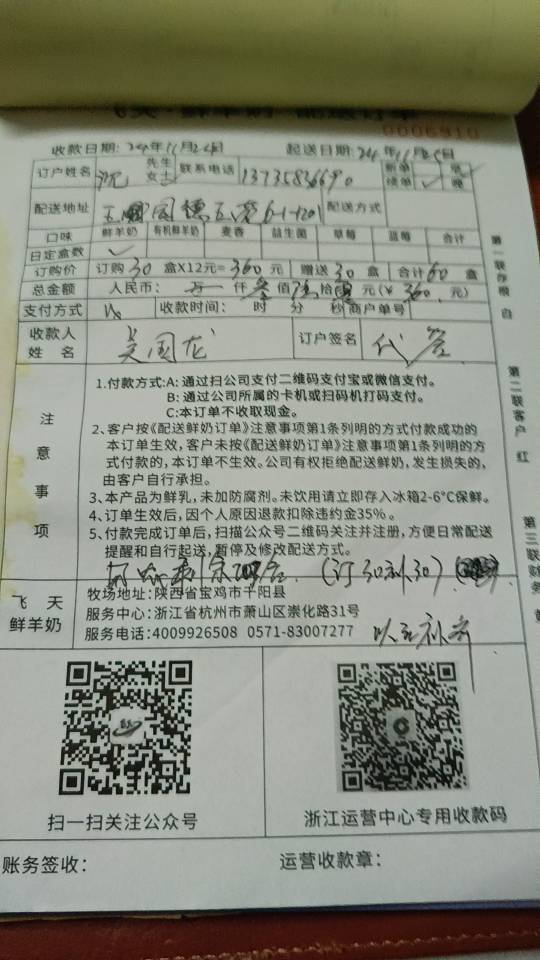 0006910
收款日期: 24年11月24日 起送日期: 24年11月25日
订户姓名 沈 先生 女士 联系电话 13735836690 新单 续单 早 晚
配送地址 配送方式
口味 鲜羊奶 有机鲜羊奶 麦香 益生菌 草莓 蓝莓 合计
日定盒数 ✓
订购价 订购 30 盒X12元= 360 元 赠送 30 盒 合计 60 盒
总金额 人民币: 万 仟 叁 佰 陆 拾 零 元(¥ 360. 元)
支付方式 收款时间: 时 分 秒 商户单号
收款人姓名 吴国龙 订户签名 代签
注意事项
1.付款方式:A: 通过扫公司支付二维码支付宝或微信支付。
B: 通过公司所属的卡机或扫码机打码支付。
C:本订单不收取现金。
2、客户按《配送鲜奶订单》注意事项第1条列明的方式付款成功的
本订单生效，客户未按《配送鲜奶订单》注意事项第1条列明的方
式付款的，本订单不生效。公司有权拒绝配送鲜奶，发生损失的，
由客户自行承担。
3、本产品为鲜乳，未加防腐剂。未饮用请立即存入冰箱2-6°C保鲜。
4、订单生效后，因个人原因退款扣除违约金35%。
5、付款完成订单后，扫描公众号二维码关注并注册，方便日常配送
提醒和自行起送，暂停及修改配送方式。
(订30补30)
飞天
鲜羊奶
牧场地址:陕西省宝鸡市千阳县
服务中心:浙江省杭州市萧山区崇化路31号
服务电话:4009926508 0571-83007277
扫一扫关注公众号
浙江运营中心专用收款码
账务签收:
运营收款章:
第一联存根 白
第二联客户 红
第三联财务 黄